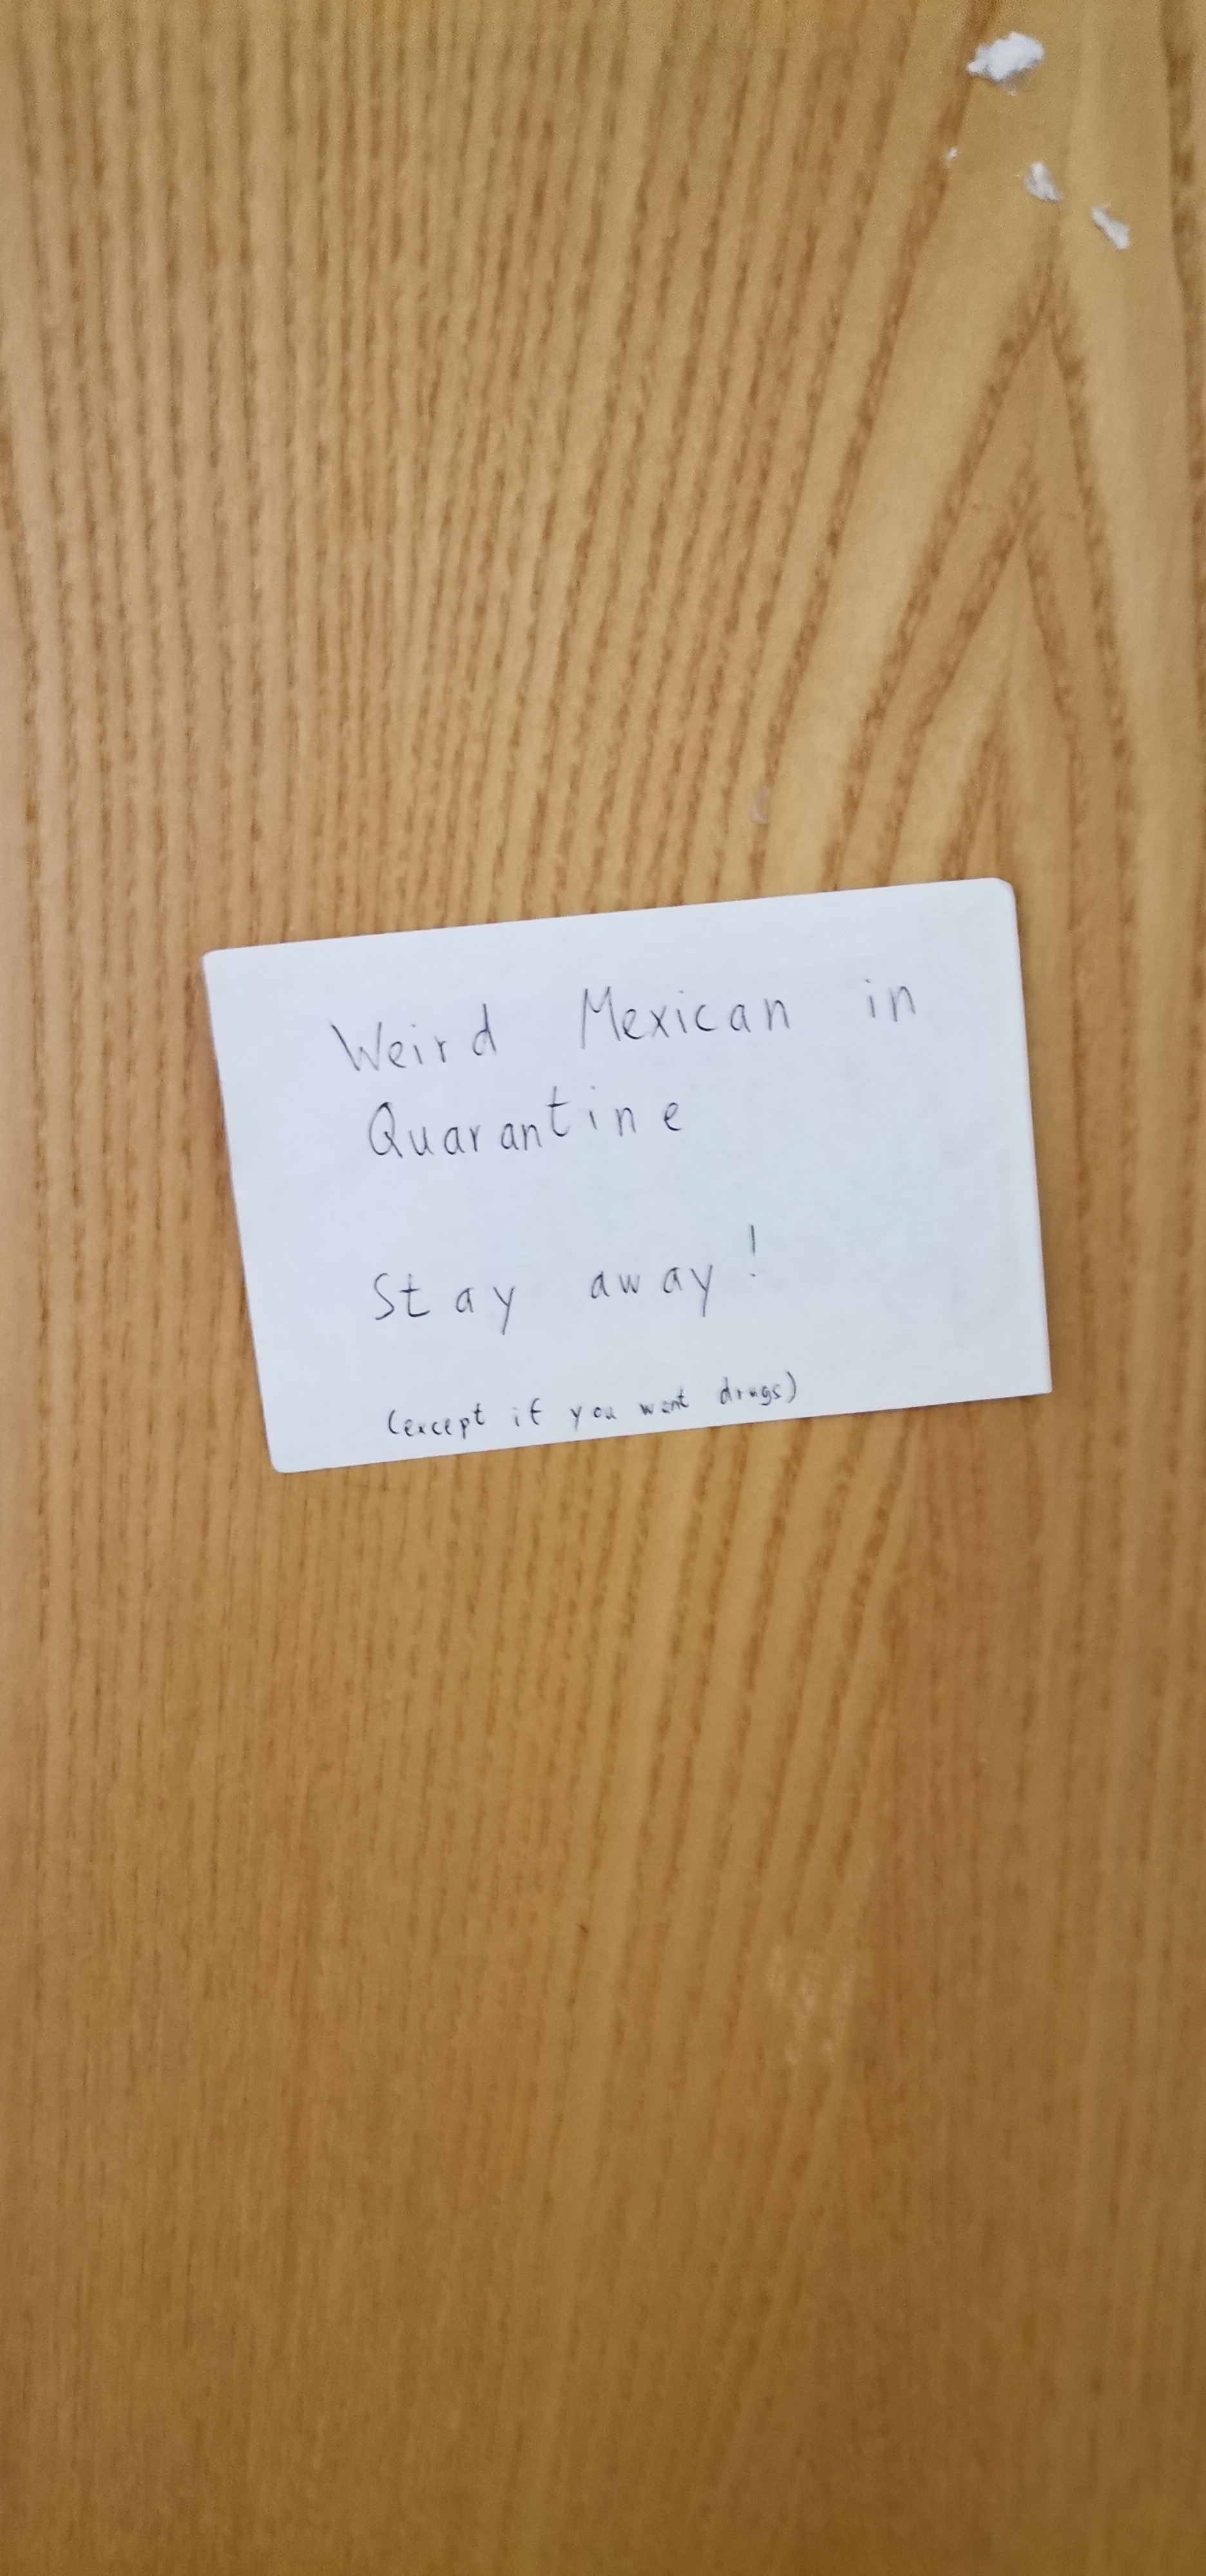 Weird Mexican in
Quarantine
Stay away!
(except if you want drugs)